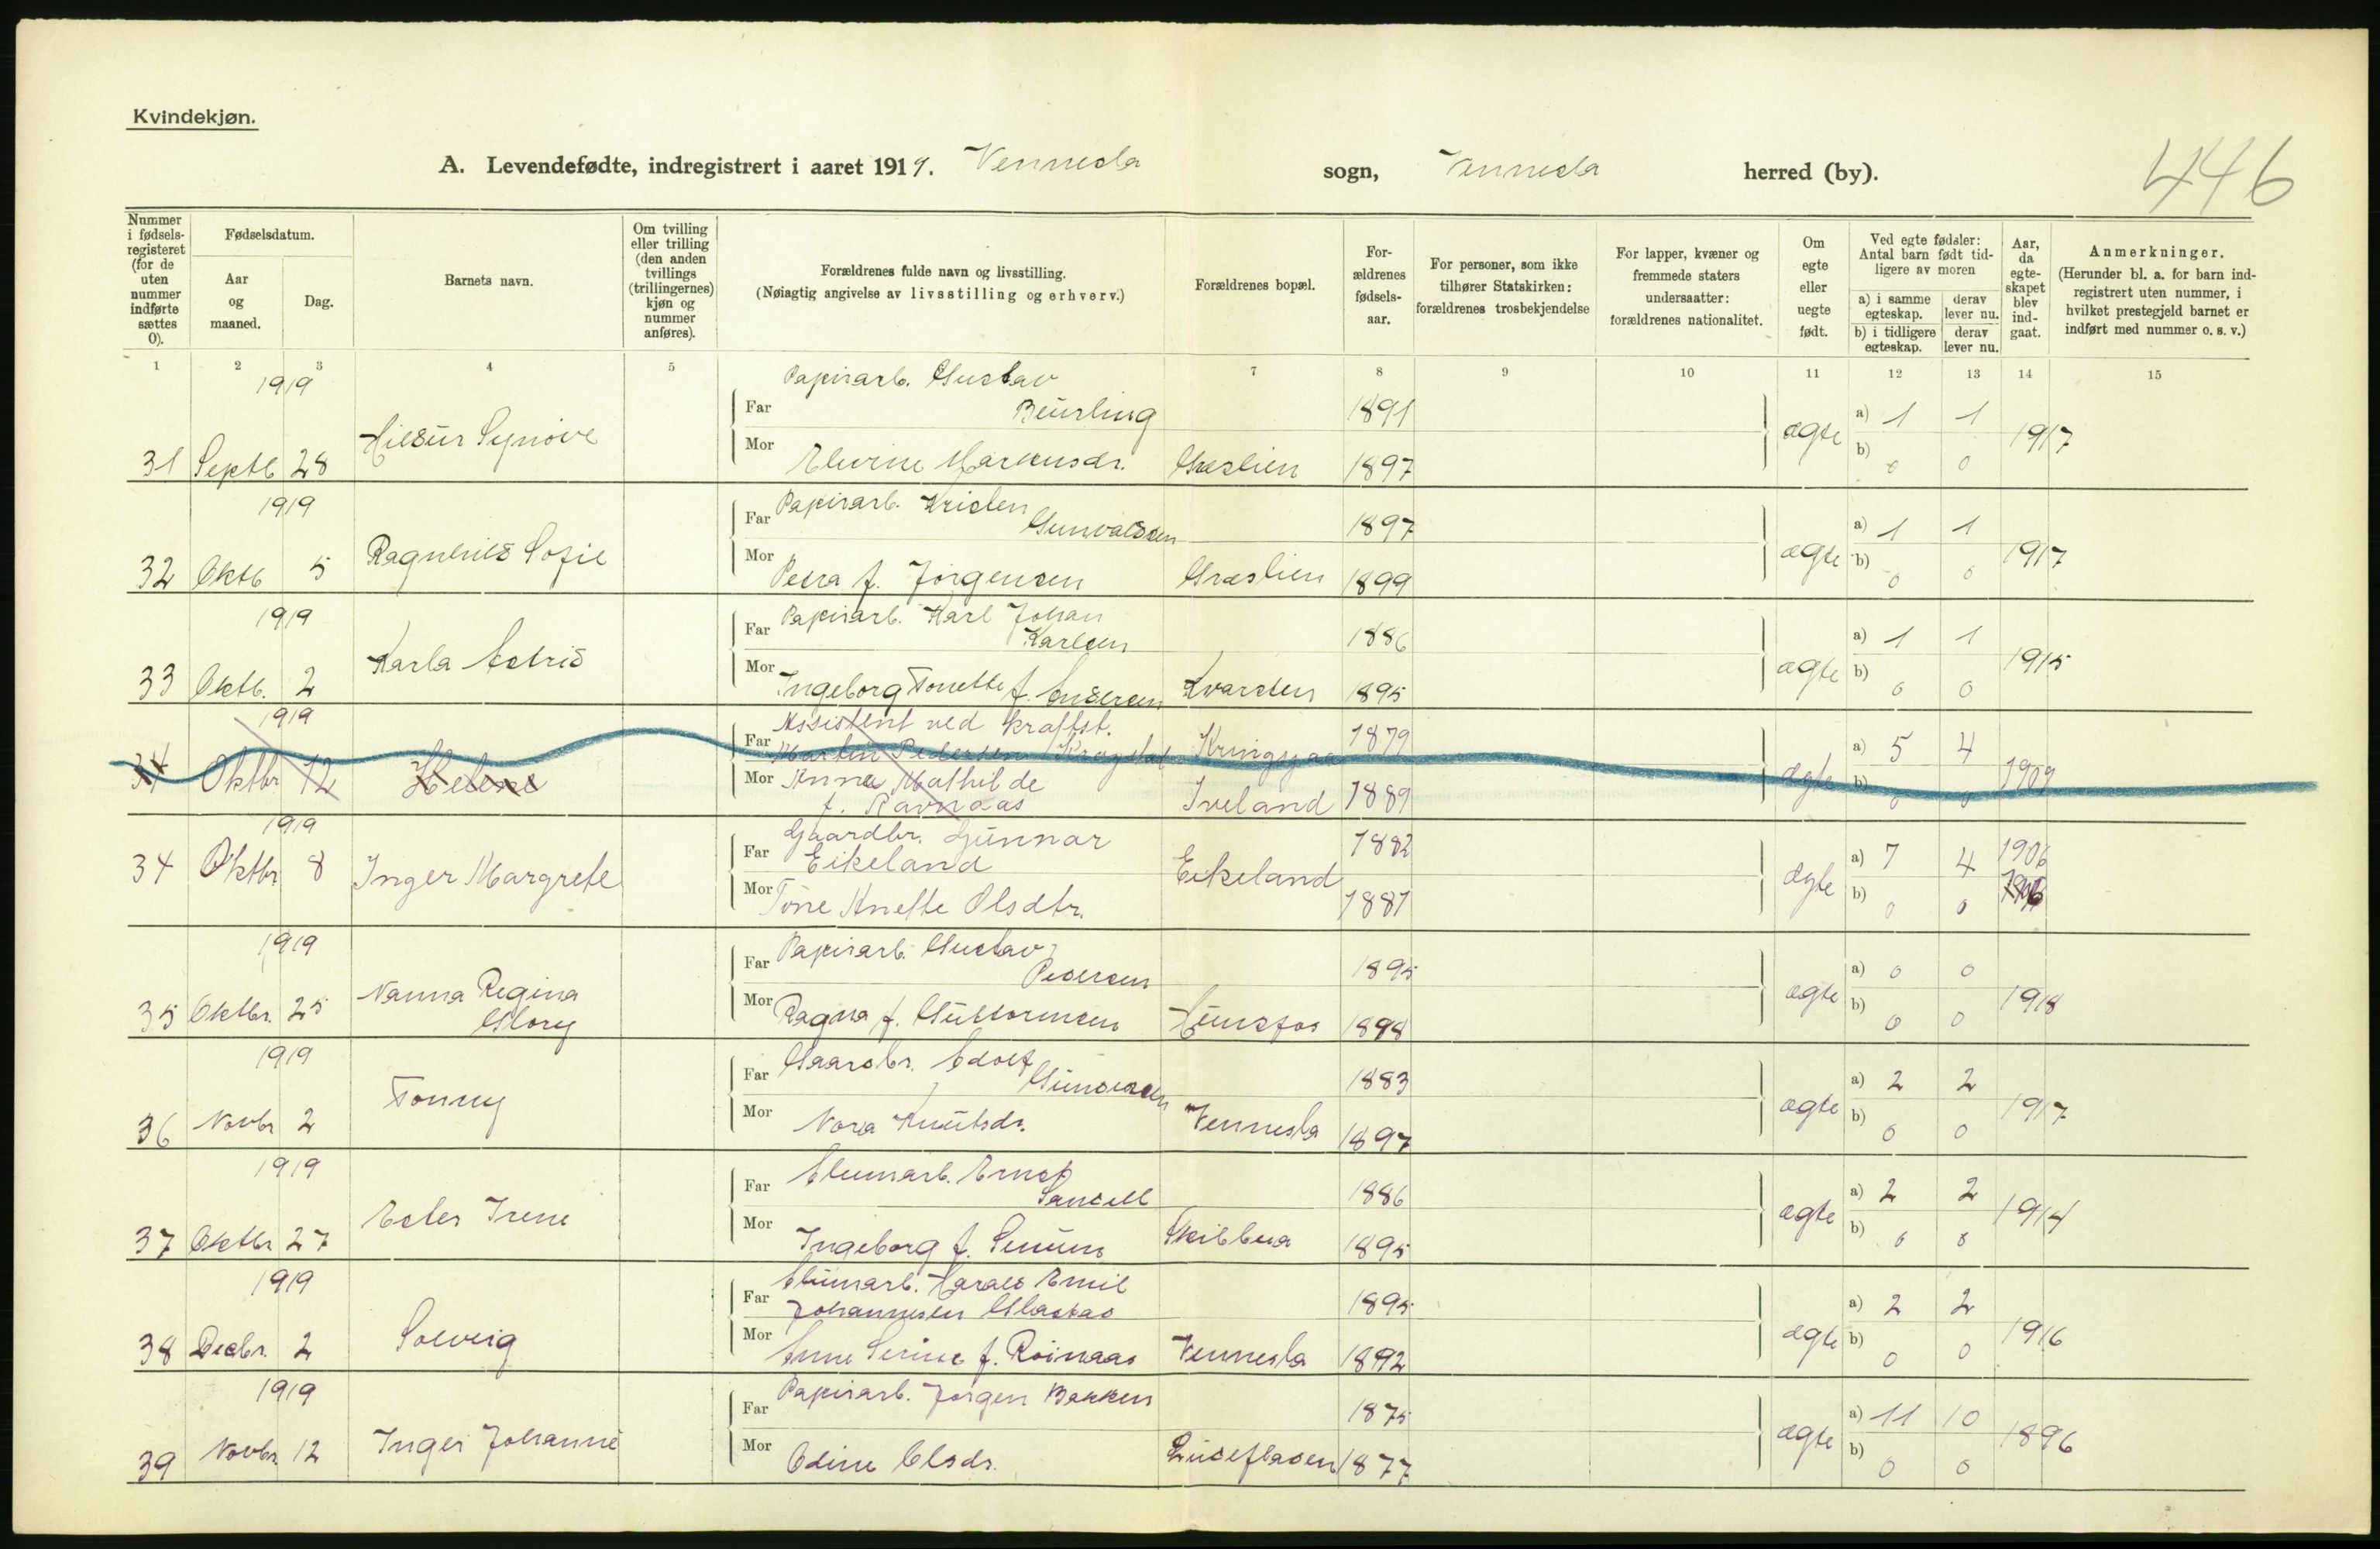 Kvindekjøn.
446
A. Levendefødte, indregistrert i aaret 1919. Vennesla sogn, Vennesla herred (by).
Nummer i fødsels-registeret (for de uten nummer indførte sættes 0).
Fødselsdatum.
Aar og maaned.
Dag.
Barnets navn.
Om tvilling eller trilling (den anden tvillings (trillingernes) kjøn og nummer anføres).
Forældrenes fulde navn og livsstilling.
(Nøiagtig angivelse av livsstilling og erhverv.)
Forældrenes bopæl.
For-ældrenes fødsels-aar.
For personer, som ikke tilhører Statskirken: forældrenes trosbekjendelse
For lapper, kvæner og fremmede staters undersaatter: forældrenes nationalitet.
Om egte eller uegte født.
Ved egte fødsler: Antal barn født tid-ligere av moren
a) i samme egteskap.
derav lever nu.
b) i tidligere egteskap.
derav lever nu.
Aar, da egte-skapet blev ind-gaat.
Anmerkninger.
(Herunder bl. a. for barn ind-registrert uten nummer, i hvilket prestegjeld barnet er indført med nummer o. s. v.)
1 2 3 4 5 7 8 9 10 11 12 13 14 15
1919
Far Papirarb. Gustav Beurling 1891 a) 1 1
31 Septb 28 Hildur Synøve
Mor Elvine Markusdr. Græslien 1897 ægte b) 0 0 1917
1919
Far Papirarb. Kristen Gunvaldsen 1897 a) 1 1
32 Oktb 5 Ragnhild Sofie
Mor Petra f. Jørgensen Græslien 1899 ægte b) 0 0 1917
1919
Far Papirarb. Karl Johan Karlsen 1886 a) 1 1
33 Oktb. 2 Karla Astrid
Mor Ingeborg Tonette f. Andersen Kvarsten 1895 ægte b) 0 0 1915
1919
Far Assistent ved kraftst. Martin Pedersen Kragstad Kringsjaa 1879 a) 5 4
34 Oktbr 12 Helene
Mor Anna Mathilde f. Ravnaas Iveland 1889 ægte b) 0 0 1909
1919
Far Gaardbr. Gunnar Eikeland 1882 a) 7 4 1906
34 Oktbr 8 Inger Margrete Eikeland
Mor Tone Anette Olsdtr. 1881 ægte b) 0 0
1919
Far Papirarb. Gustav Pedersen 1895 a) 0 0
35 Oktbr. 25 Nanna Regina Glory
Mor Ragna f. Guttormsen Hunsfos 1898 ægte b) 0 0 1918
1919
Far Gaardbr. Adolf Gundersen 1883 a) 2 2
36 Novbr 2 Tonny
Mor Nora Knutsdr. Vennesla 1897 ægte b) 0 0 1917
1919
Far Alumarb. Ernst Sandell 1886 a) 2 2
37 Oktbr 27 Ester Irene
Mor Ingeborg f. Senum Skibbua 1895 ægte b) 0 0 1914
1919
Far Alumarb. Harald Emil Johannesen Glastad 1895 a) 2 2
38 Decbr. 2 Solveig
Mor Anne Serine f. Røinaas Vennesla 1892 ægte b) 0 0 1916
1919
Far Papirarb. Jørgen Bakken 1875 a) 11 10
39 Novbr 12 Inger Johanne
Mor Edine Olsdr. Lindefladen 1877 ægte b) 0 0 1896